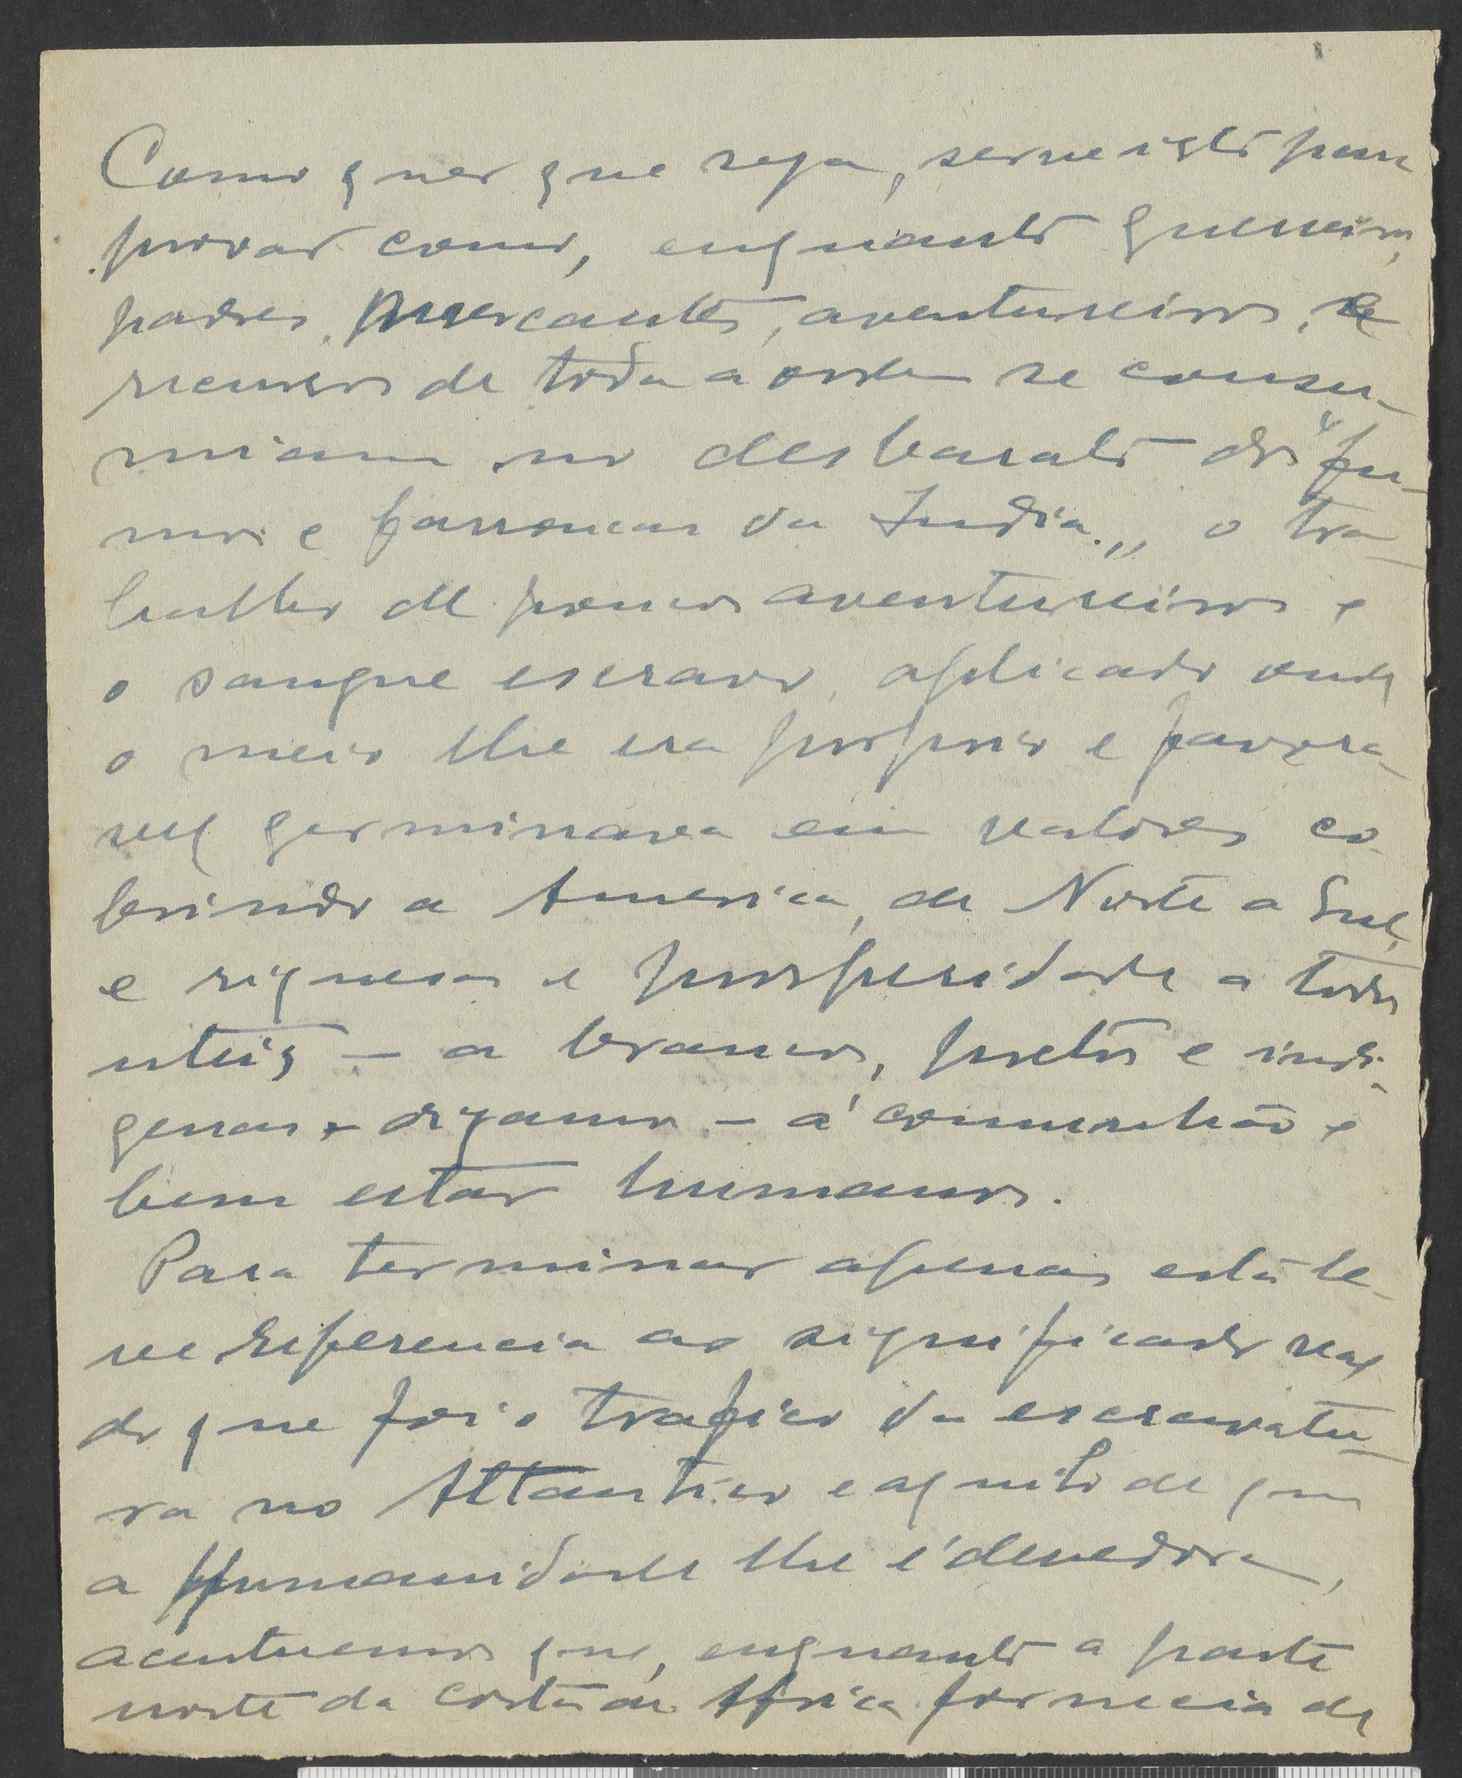 Como quer que seja, serve isto para
provar como, enquanto guerreiros,
padres, mercantes, aventureiros, e
recursos de toda a ordem se consu-
miam no desbarato dos "fu-
mos e farroncas da India", o tra-
balho de poucos aventureiros e
o sangue escravo, aplicado onde
o meio lhe era proprio e favora-
vel germinava em valores co-
brindo a America, de Norte a Sul,
e riquesas e prosperidade a todos
uteis - a brancos, pretos e indi-
genas - digamos - á comunhão e
bem estar humanos.
Para terminar apenas esta le-
ve referencia ao significado real
do que foi o trafico da escravatu-
ra no Atlantico e aquilo de que
a Humanidade lhe é devedora,
acentuemos que, enquanto a parte
norte da costa de Africa fornecia de